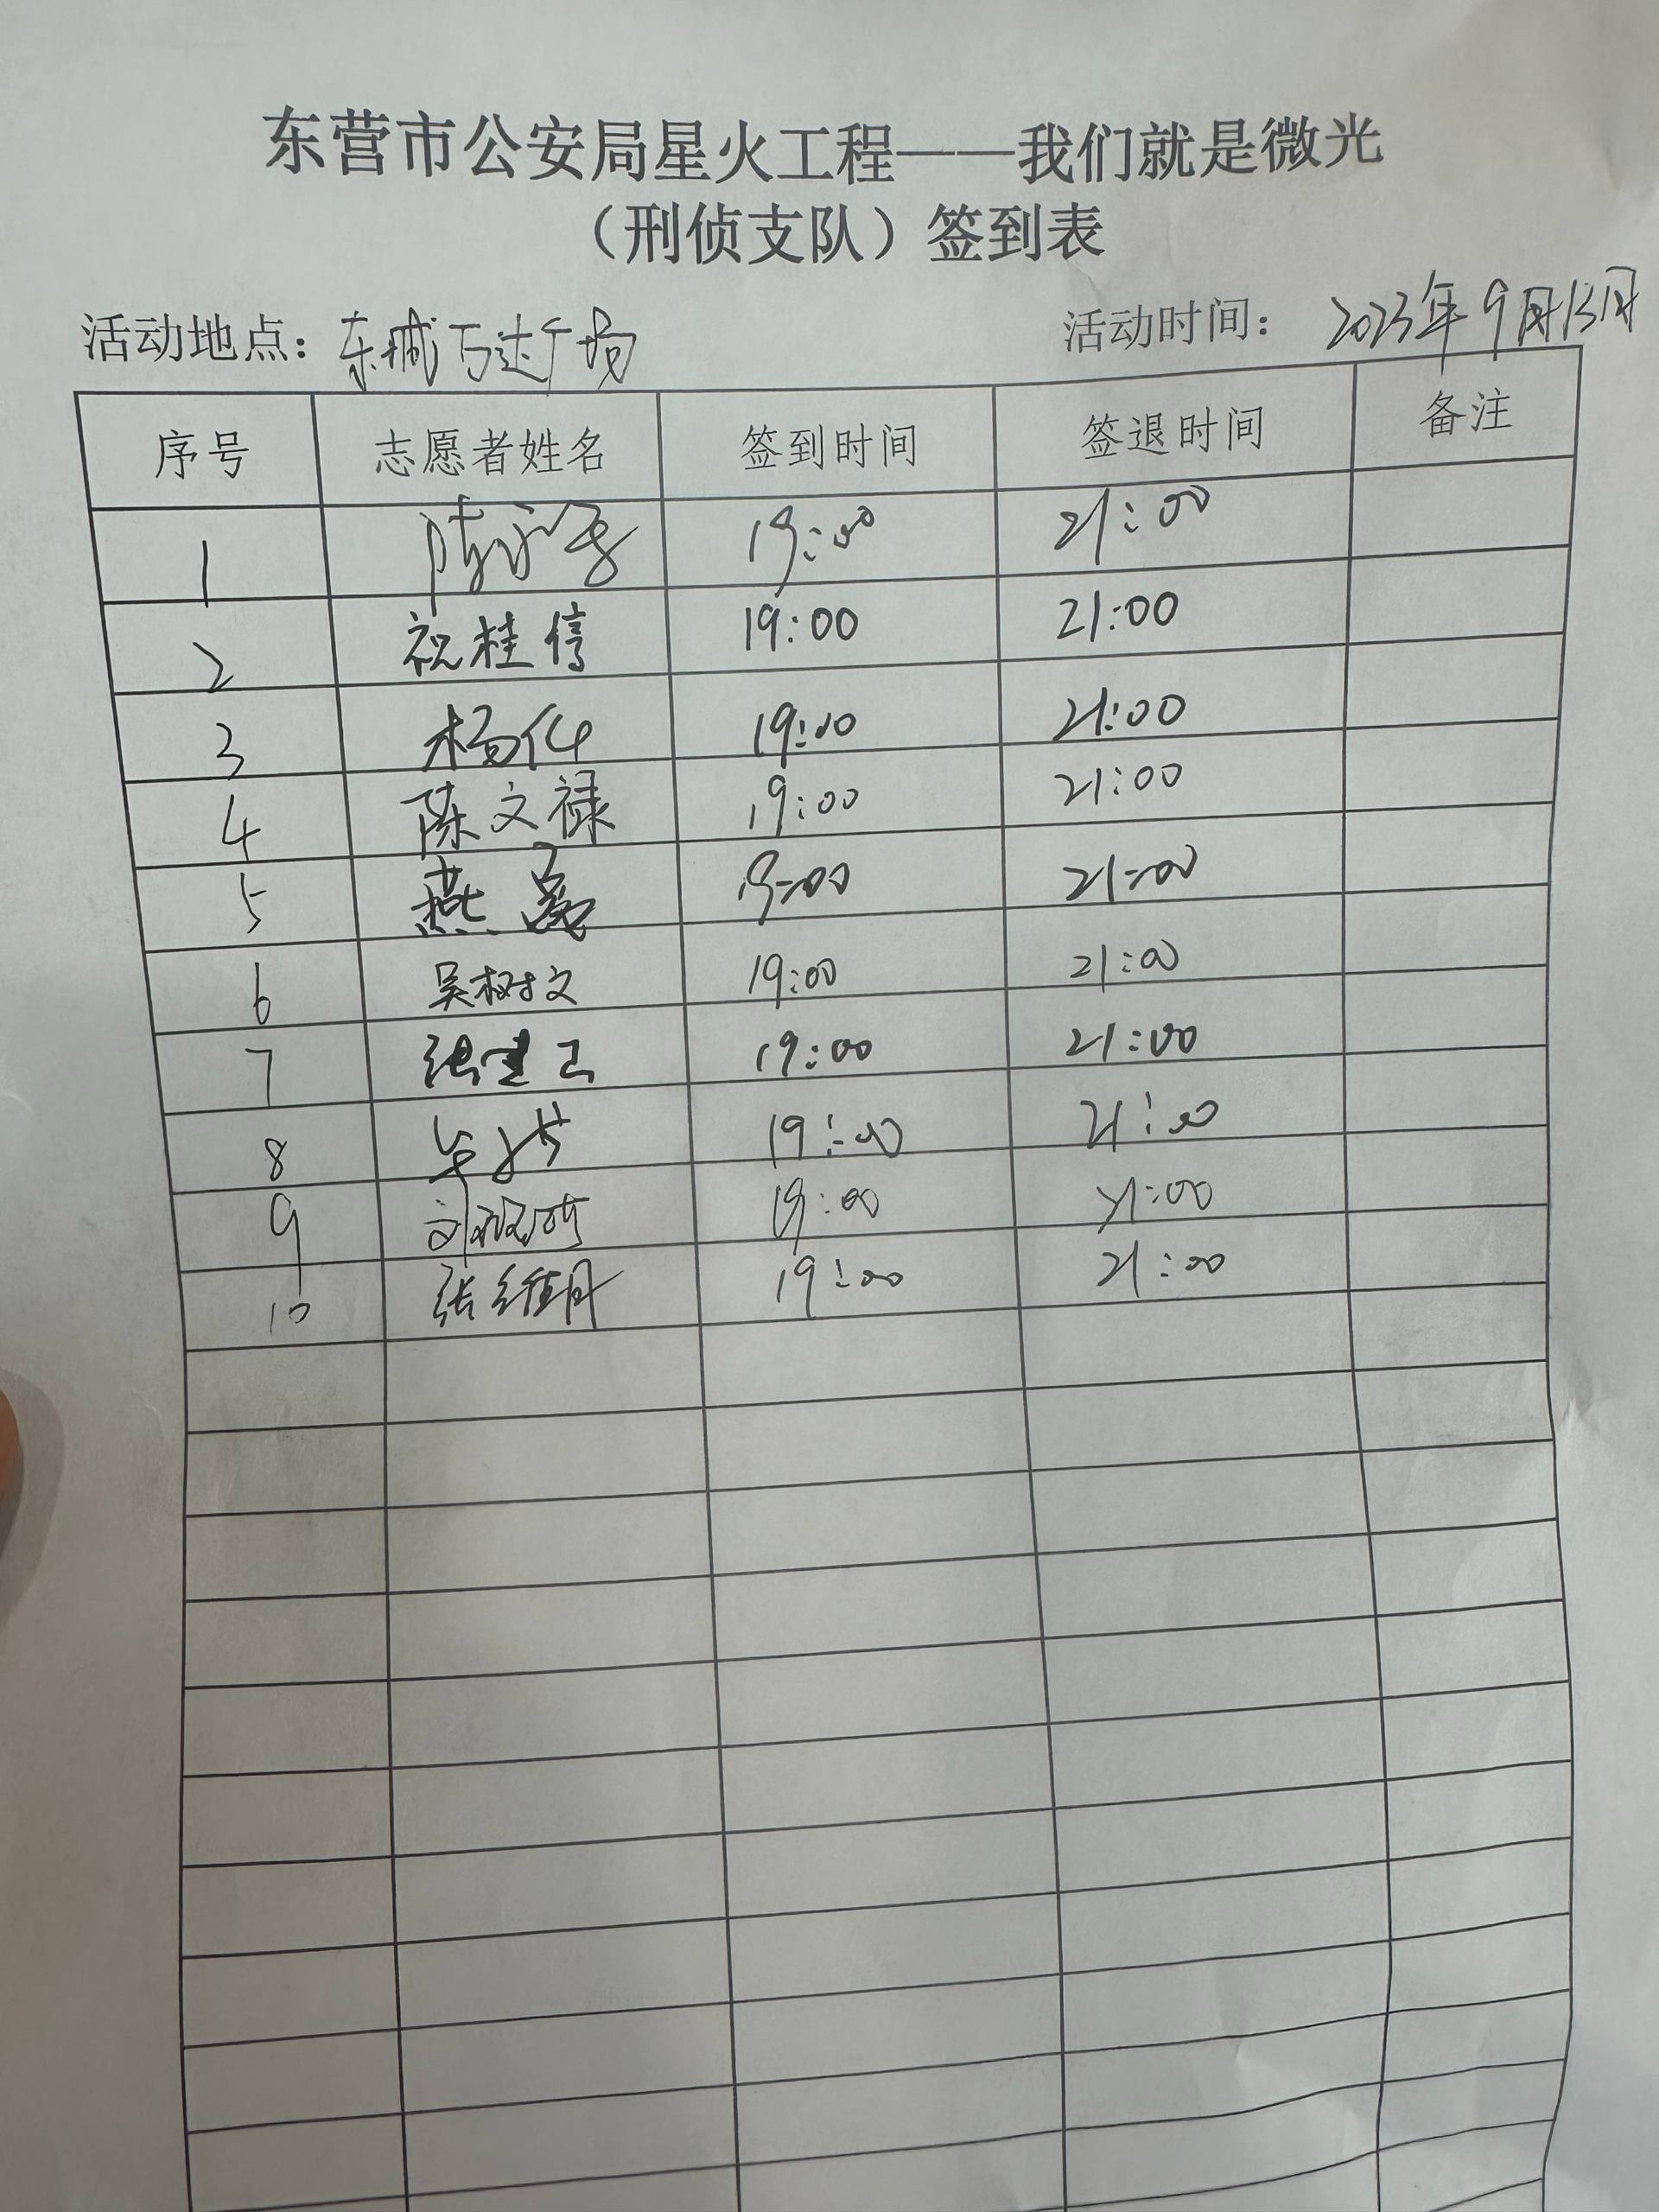 东营市公安局星火工程——我们就是微光
（刑侦支队）签到表
活动地点：东城万达广场 活动时间：2023年9月13日
序号 志愿者姓名 签到时间 签退时间 备注
1 19:00 21:00
2 祝桂停 19:00 21:00
3 杨伟 19:00 21:00
4 陈文禄 19:00 21:00
5 燕 19:00 21:00
6 吴树文 19:00 21:00
7 张 19:00 21:00
8 19:00 21:00
9 刘 19:00 21:00
10 张维丹 19:00 21:00